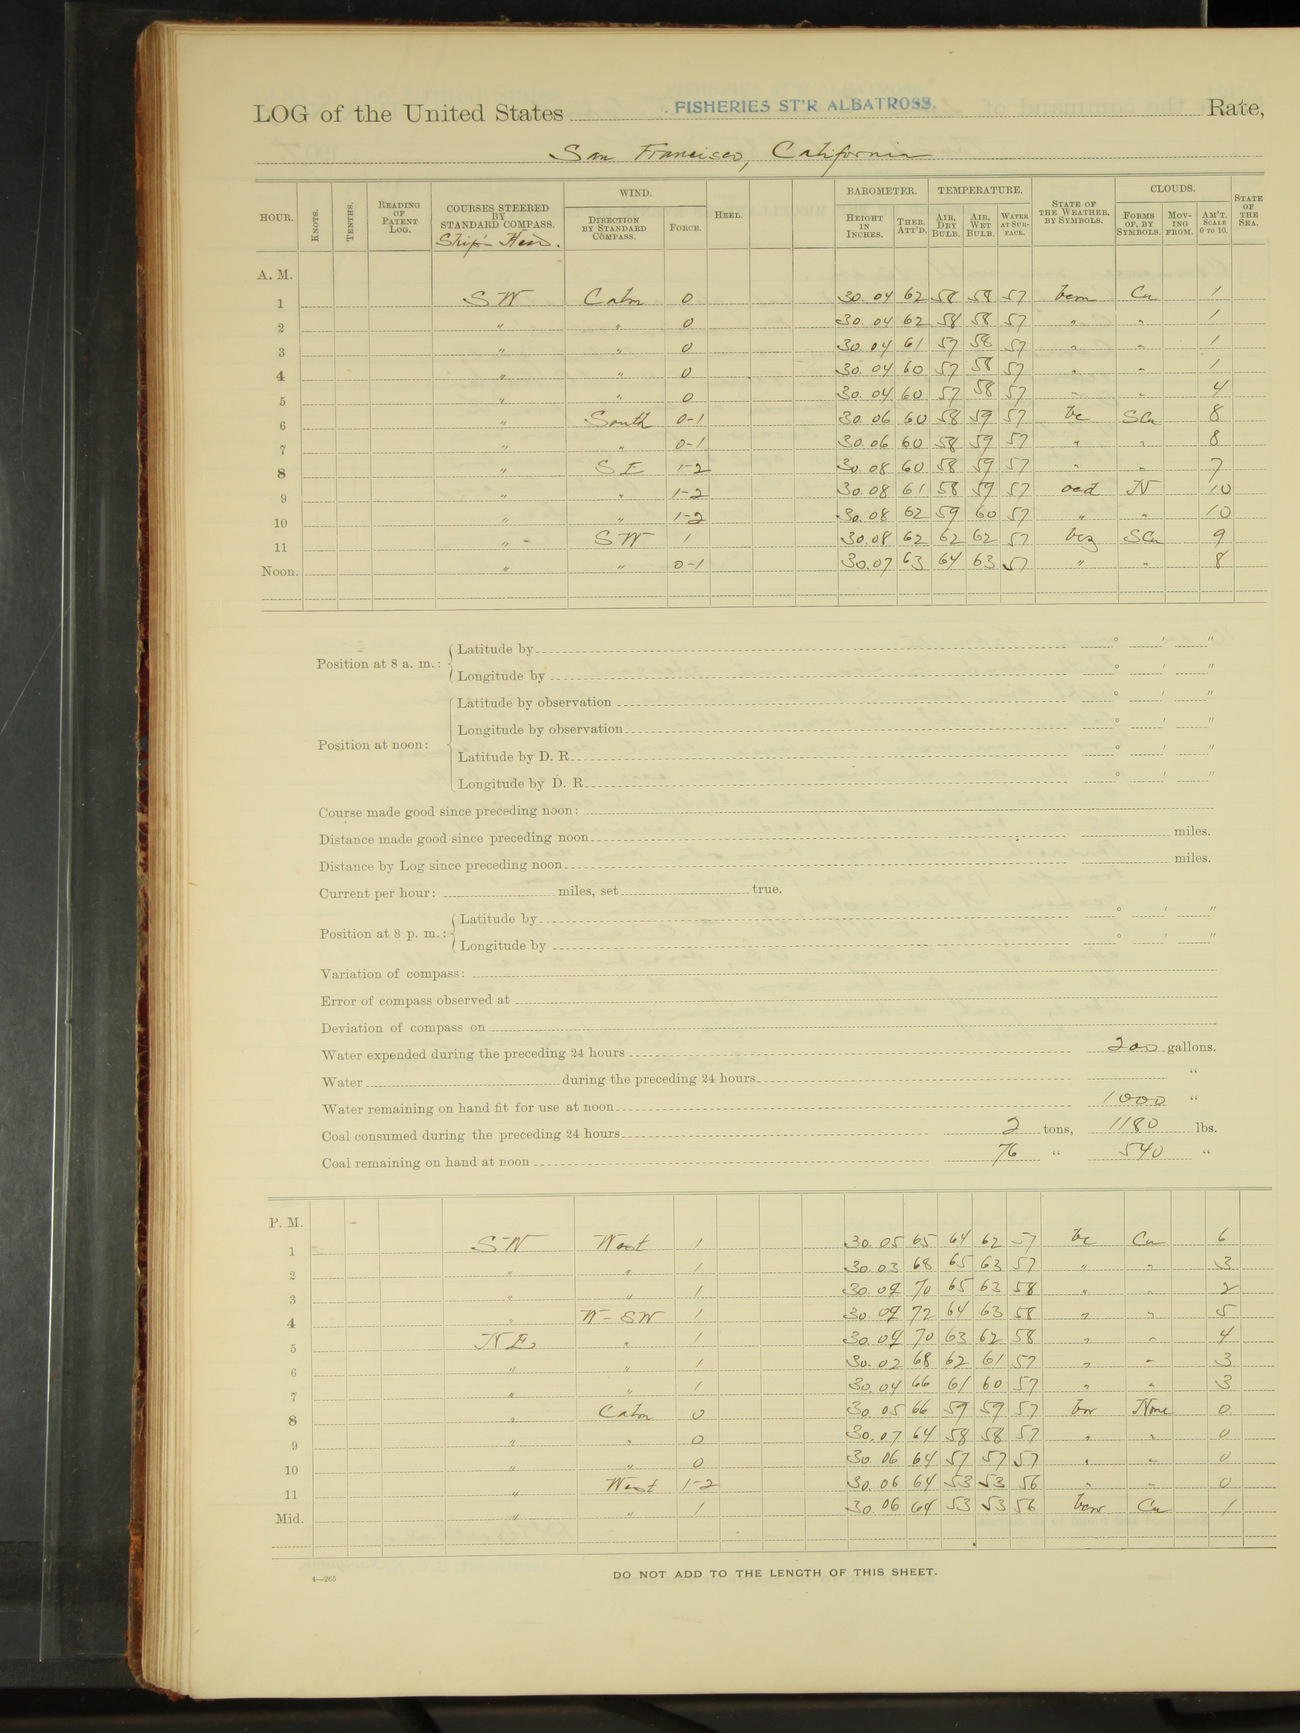 LOG of the United States FISHERIES ST'R ALBATROSS. Rate,
San Francisco, California
HOUR. KNOTS. TENTHS. READING OF PATENT LOG. COURSES STEERED BY STANDARD COMPASS. WIND. DIRECTION BY STANDARD COMPASS. FORCE. HEEL. BAROMETER. HEIGHT IN INCHES. THER. ATT'D. TEMPERATURE. AIR, DRY BULB. AIR, WET BULB. WATER AT SURFACE. STATE OF THE WEATHER, BY SYMBOLS. CLOUDS. FORMS OF, BY SYMBOLS. MOVING FROM. AM'T. SCALE 0 TO 10. STATE OF THE SEA.
Ship's
A. M.
1 SW Calm 0 30.04 62 58 58 57 bcm Cu 1
2 " " 0 30.04 62 58 58 57 " " 1
3 " " 0 30.04 61 57 58 57 " " 1
4 " " 0 30.04 60 57 58 57 " " 1
5 " " 0 30.04 60 57 58 57 " " 4
6 " South 0-1 30.06 60 58 59 57 bc SCu 8
7 " " 0-1 30.06 60 58 59 57 " " 8
8 " SE 1-2 30.08 60 58 59 57 " " 7
9 " " 1-2 30.08 61 58 59 57 ocd N 10
10 " " 1-2 30.08 62 59 60 57 " " 10
11 " SW 1 30.08 62 62 62 57 bcz SCu 9
Noon. " " 0-1 30.07 63 64 63 57 " " 8
Position at 8 a. m.: Latitude by ° ' "
Longitude by ° ' "
Position at noon: Latitude by observation ° ' "
Longitude by observation ° ' "
Latitude by D. R. ° ' "
Longitude by D. R. ° ' "
Course made good since preceding noon:
Distance made good since preceding noon miles.
Distance by Log since preceding noon miles.
Current per hour: miles, set true.
Position at 8 p. m.: Latitude by ° ' "
Longitude by ° ' "
Variation of compass:
Error of compass observed at
Deviation of compass on
Water expended during the preceding 24 hours 200 gallons.
Water during the preceding 24 hours "
Water remaining on hand fit for use at noon 1000 "
Coal consumed during the preceding 24 hours 2 tons, 1180 lbs.
Coal remaining on hand at noon 76 " 540 "
P. M.
1 SW West 1 30.05 65 64 62 57 bc Cu 6
2 " " 1 30.03 68 65 63 57 " " 3
3 " " 1 70 65 63 58 " " 2
4 " W-SW 1 72 64 63 58 " " 5
5 NE " 1 70 63 62 58 " " 4
6 " " 1 30.02 68 62 61 57 " " 3
7 " " 1 30.04 66 61 60 57 " " 3
8 " Calm 0 30.05 66 59 59 57 None 0
9 " " 0 30.07 64 58 58 57 " " 0
10 " " 0 30.06 64 57 57 57 " " 0
11 " West 1-2 30.06 64 53 53 56 " " 0
Mid. " " 1 30.06 64 53 53 56 Cu 1
4—265 DO NOT ADD TO THE LENGTH OF THIS SHEET.